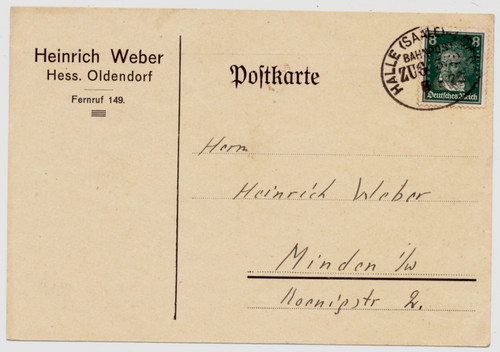 Heinrich Weber
Hess. Oldendorf
Fernruf 149.
Postkarte
HALLE (SAALE)
ZUG
8 8
Deutsches Reich
Herrn
Heinrich Weber
Minden i/W
Koenigstr 2.